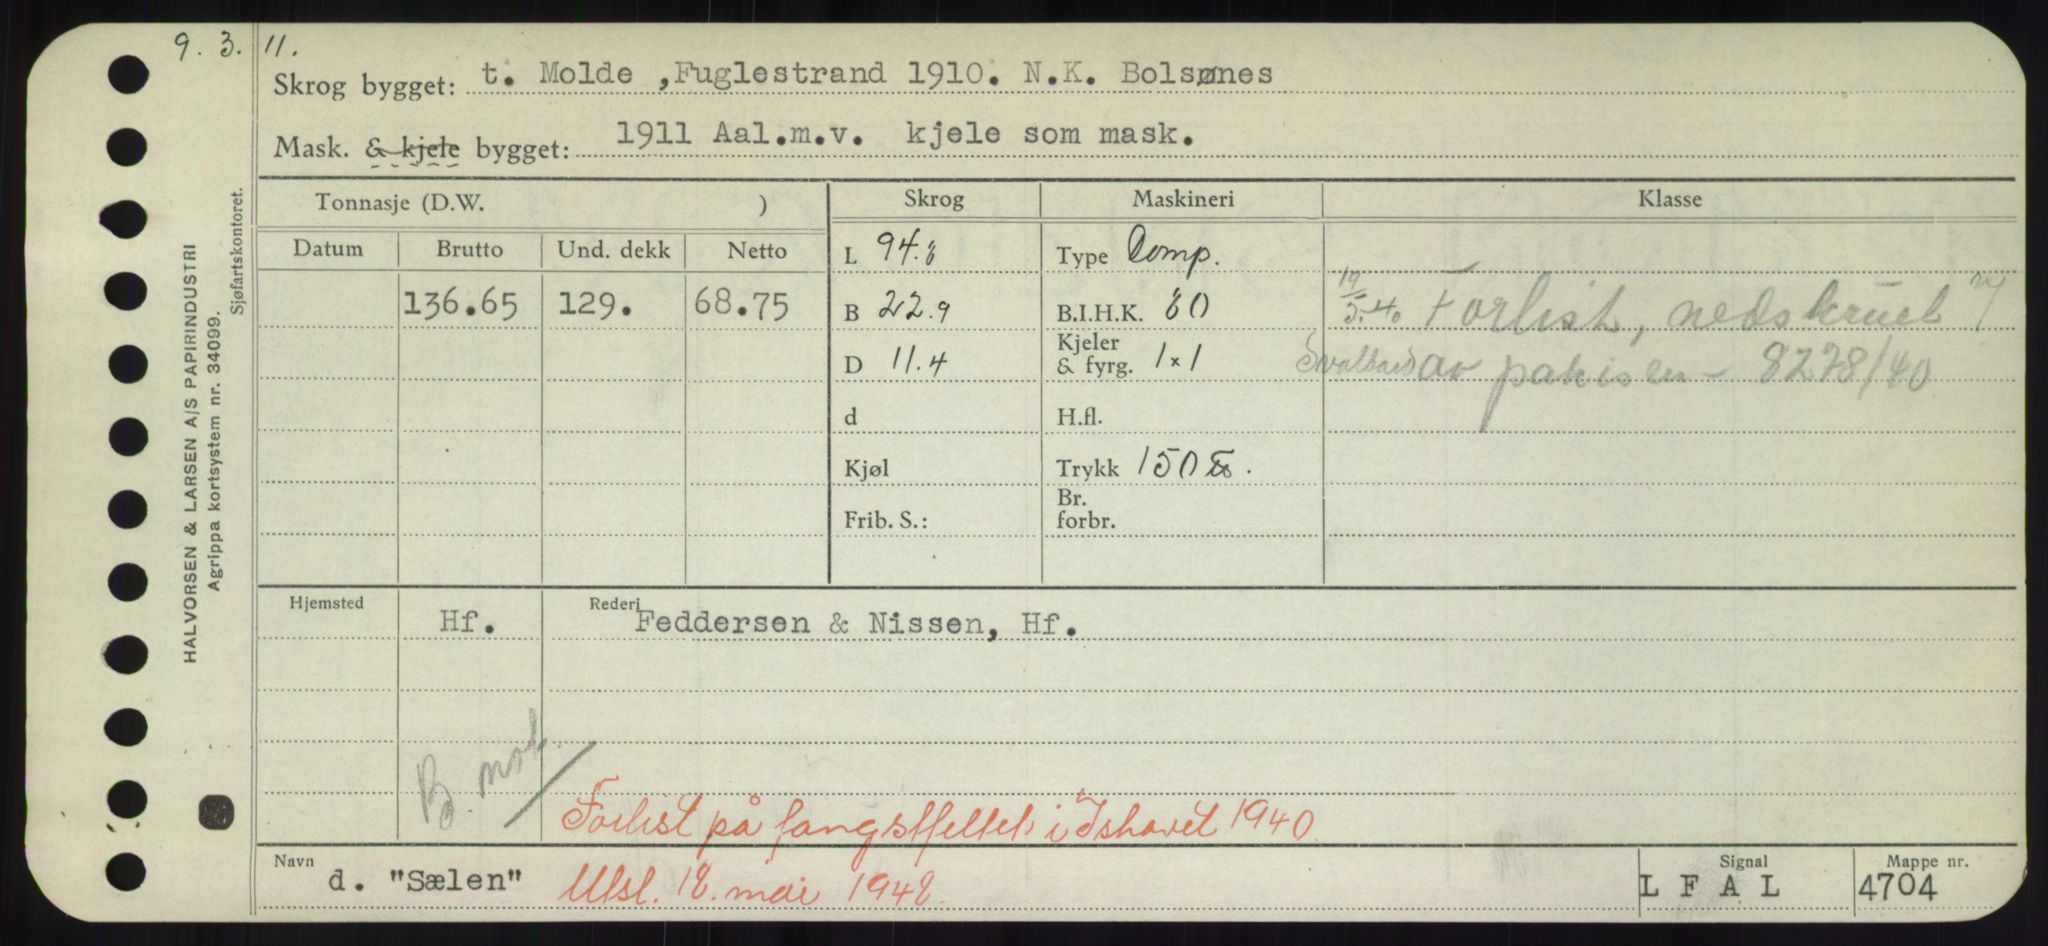 9. 3. 11.
Skrog bygget: t. Molde ,Fuglestrand 1910. N.K. Bolsønes
Mask. & kjele bygget: 1911 Aal.m.v. kjele som mask.
Tonnasje (D.W. ) Skrog Maskineri Klasse
Datum Brutto Und. dekk Netto L 94.8 Type Comp.
136.65 129. 68.75 B 22.9 B.I.H.K. 80 19/5.40 Forlist, nedskruet v/
D 11.4 Kjeler & fyrg. 1×1 Svalbard av pakisen - 8278/40
d H.fl.
Kjøl Trykk 150 lbs.
Frib. S.: Br. forbr.
Hjemsted Hf. Rederi Feddersen & Nissen, Hf.
B. not.
Forlist på fangstfeltet i Ishavet 1940
Navn d. "Sælen" Utsl. 18. mai 1948. Signal L F A L Mappe nr. 4704
HALVORSEN & LARSEN A/S PAPIRINDUSTRI
Agrippa kortsystem nr. 34099.
Sjøfartskontoret.